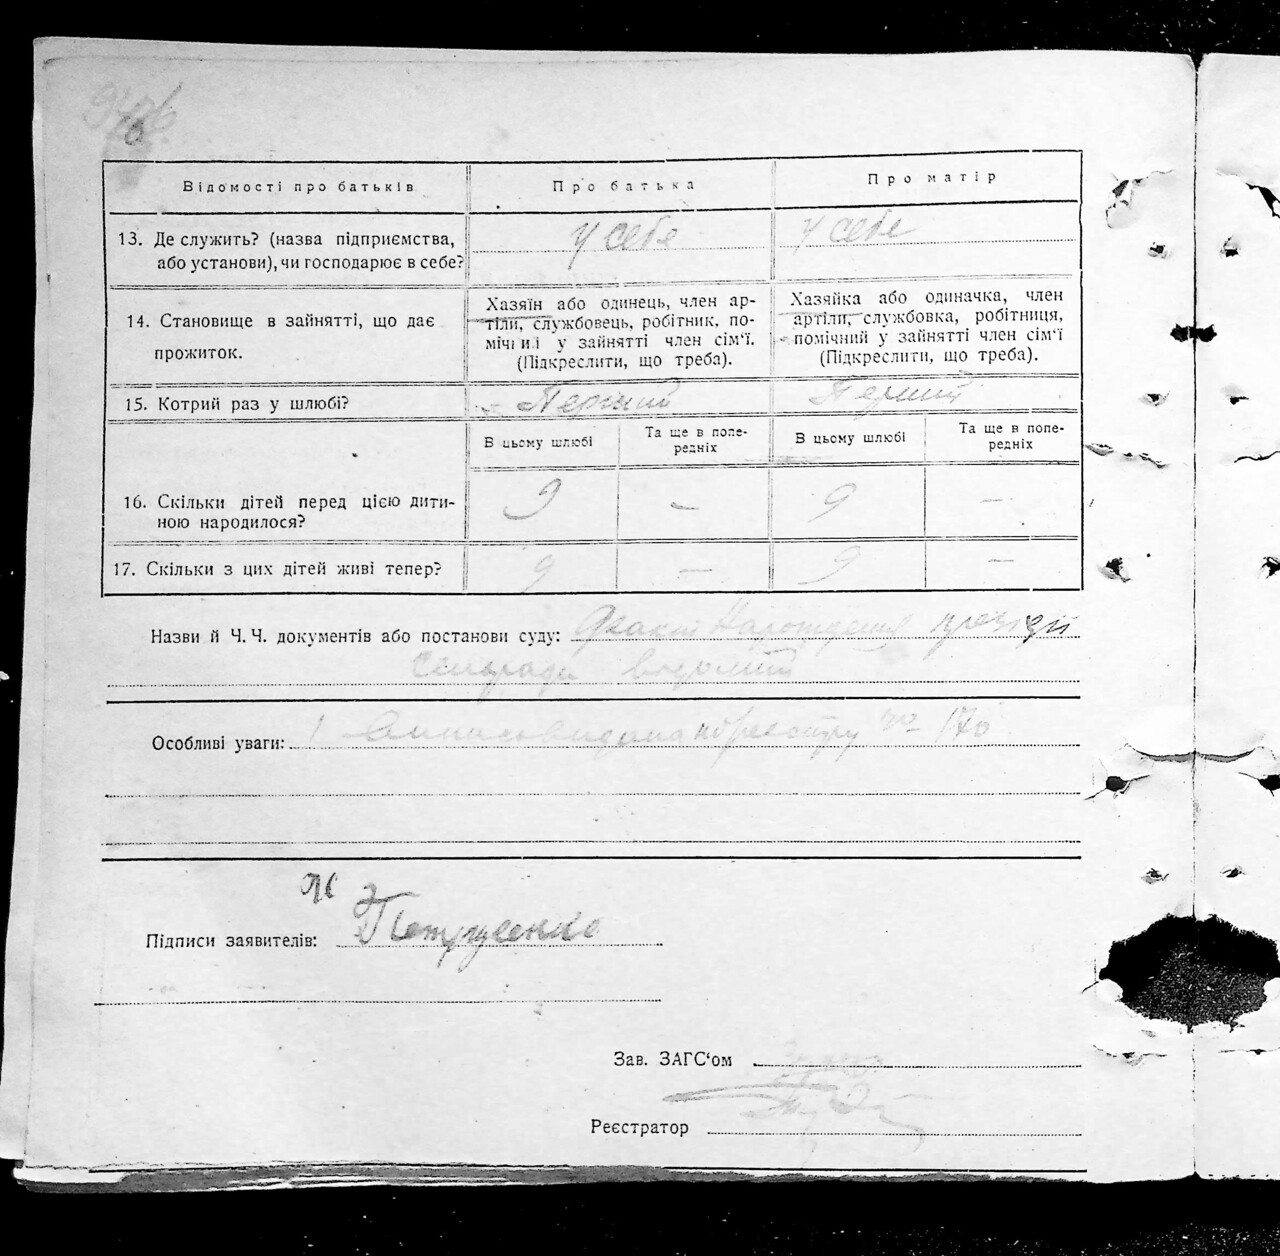 Відомості про батьків
Про батька
Про матір
13. Де служить? (назва підприємства,
або установи), чи господарює в себе?
у себе
у себе
14. Становище в зайнятті, що дає
прожиток.
Хазяїн або одинець, член ар-
тіли, службовець, робітник, по-
мічний у зайнятті член сім'ї.
(Підкреслити, що треба).
Хазяйка або одиначка, член
артіли, службовка, робітниця,
помічний у зайнятті член сім'ї
(Підкреслити, що треба).
15. Котрий раз у шлюбі?
Перший
Перший
В цьому шлюбі
Та ще в попе-
редніх
В цьому шлюбі
Та ще в попе-
редніх
16. Скільки дітей перед цією дити-
ною народилося?
9
—
9
—
17. Скільки з цих дітей живі тепер?
9
—
9
—
Назви й Ч.Ч. документів або постанови суду: Народження
Особливі уваги: 170
Підписи заявителів: Петрушенко
Зав. ЗАГС'ом
Реєстратор